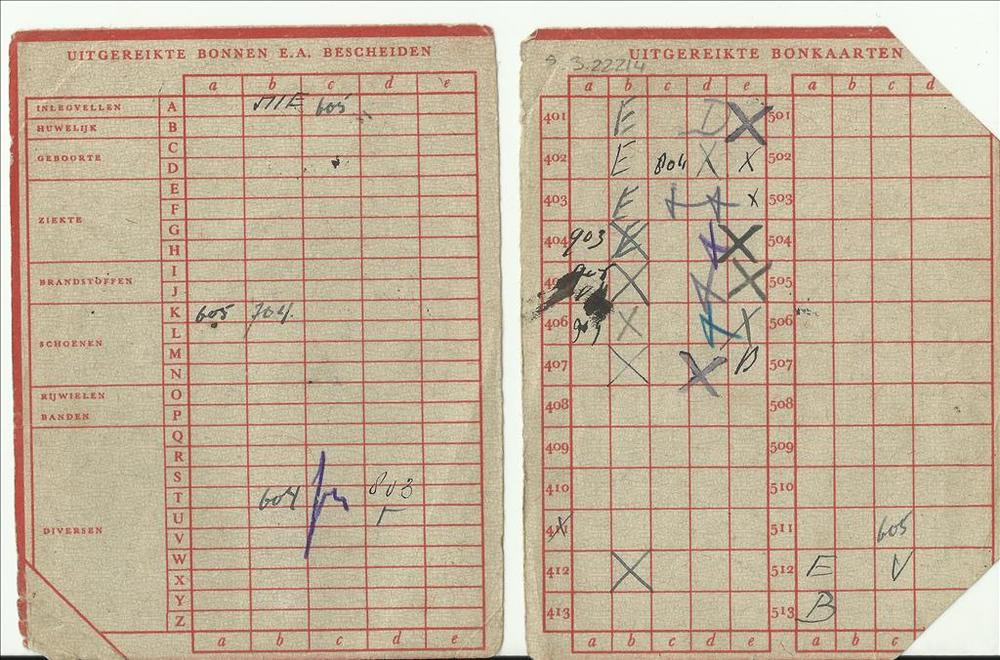 UITGEREIKTE BONNEN E.A. BESCHEIDEN
a b c d e
INLEGVELLEN A 605
HUWELIJK B
GEBOORTE C
D
E
ZIEKTE F
G
H
BRANDSTOFFEN I
J
K 605 704
L
SCHOENEN M
N
RIJWIELEN O
BANDEN P
Q
R
S
T 604 803
DIVERSEN U
V
W
X
Y
Z
a b c d e
UITGEREIKTE BONKAARTEN
3.22214
a b c d e a b c d
401 E D X 501
402 E 804 X X 502
403 E X 503
404 903 X X 504
405 X X 505
406 X X 506
407 X X B 507
408 508
409 509
410 510
411 X 511 605
412 X 512 E V
413 513 B
a b c d e a b c